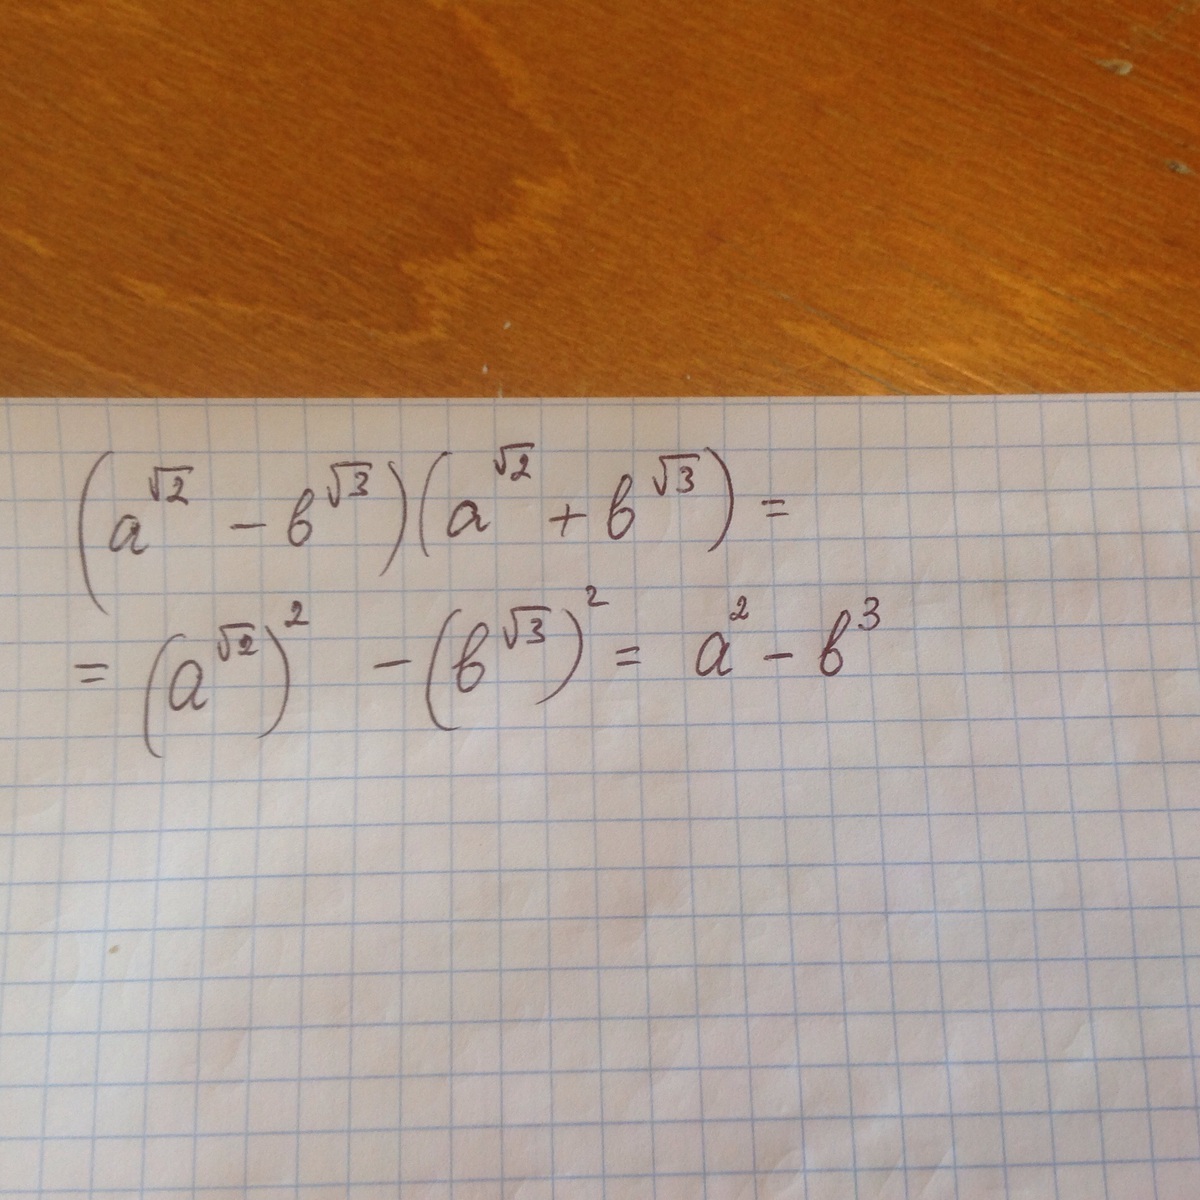 (a^√2 − b^√3)(a^√2 + b^√3) =
= (a^√2)^2 − (b^√3)^2 = a^2 − b^3